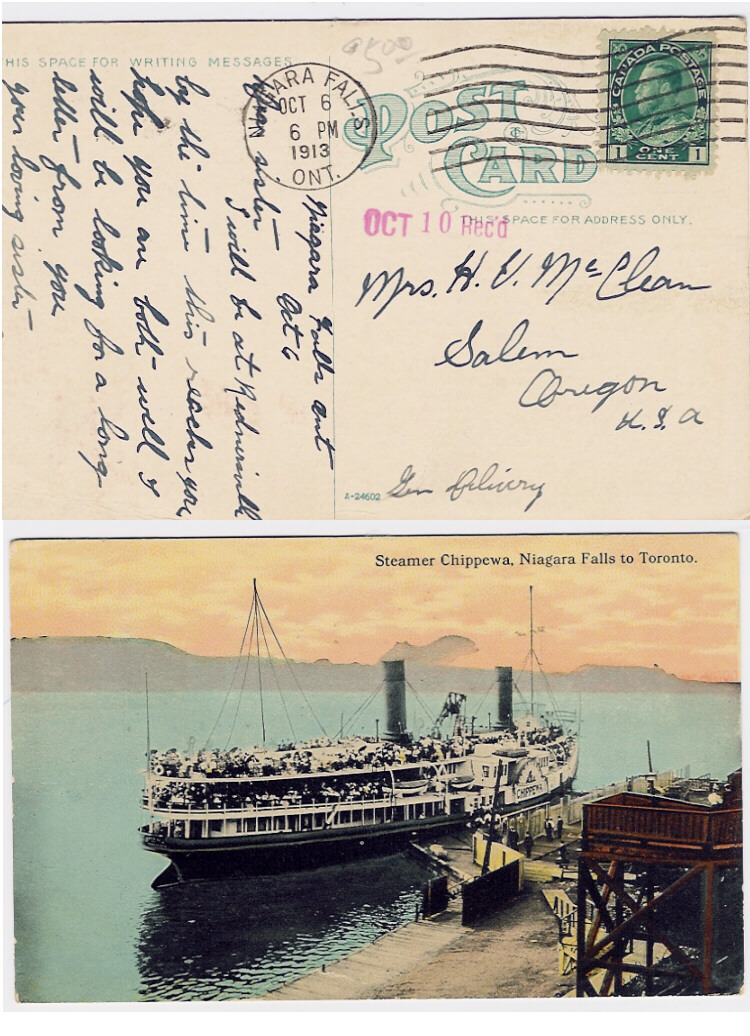 THIS SPACE FOR WRITING MESSAGES
POST CARD
THIS SPACE FOR ADDRESS ONLY.
NIAGARA FALLS
OCT 6
6 PM
1913
ONT.
CANADA POSTAGE
1 ONE CENT 1
9500
OCT 10 Rec'd
Niagara Falls ont
Oct 6
Dear sister
I will be at Rednersville
by the time this reaches you
hope you are both well I
will be looking for a long
letter from you
your loving sister
Mrs. H. V. McClean
Salem
Oregon
U.S.A
Gen Delivery
A-24602
Steamer Chippewa, Niagara Falls to Toronto.
CHIPPEWA